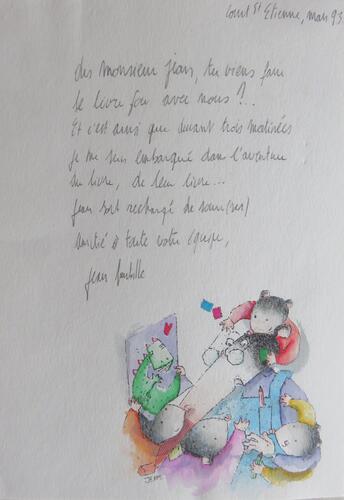 Court St Etienne, mars 93.
dis monsieur jean, tu viens faire
le livre fou avec nous ?..
Et c'est ainsi que durant trois matinées
je me suis embarqué dans l'aventure
du livre, de leur livre...
jean sort rechargé de
amitié à toute votre équipe,
jean